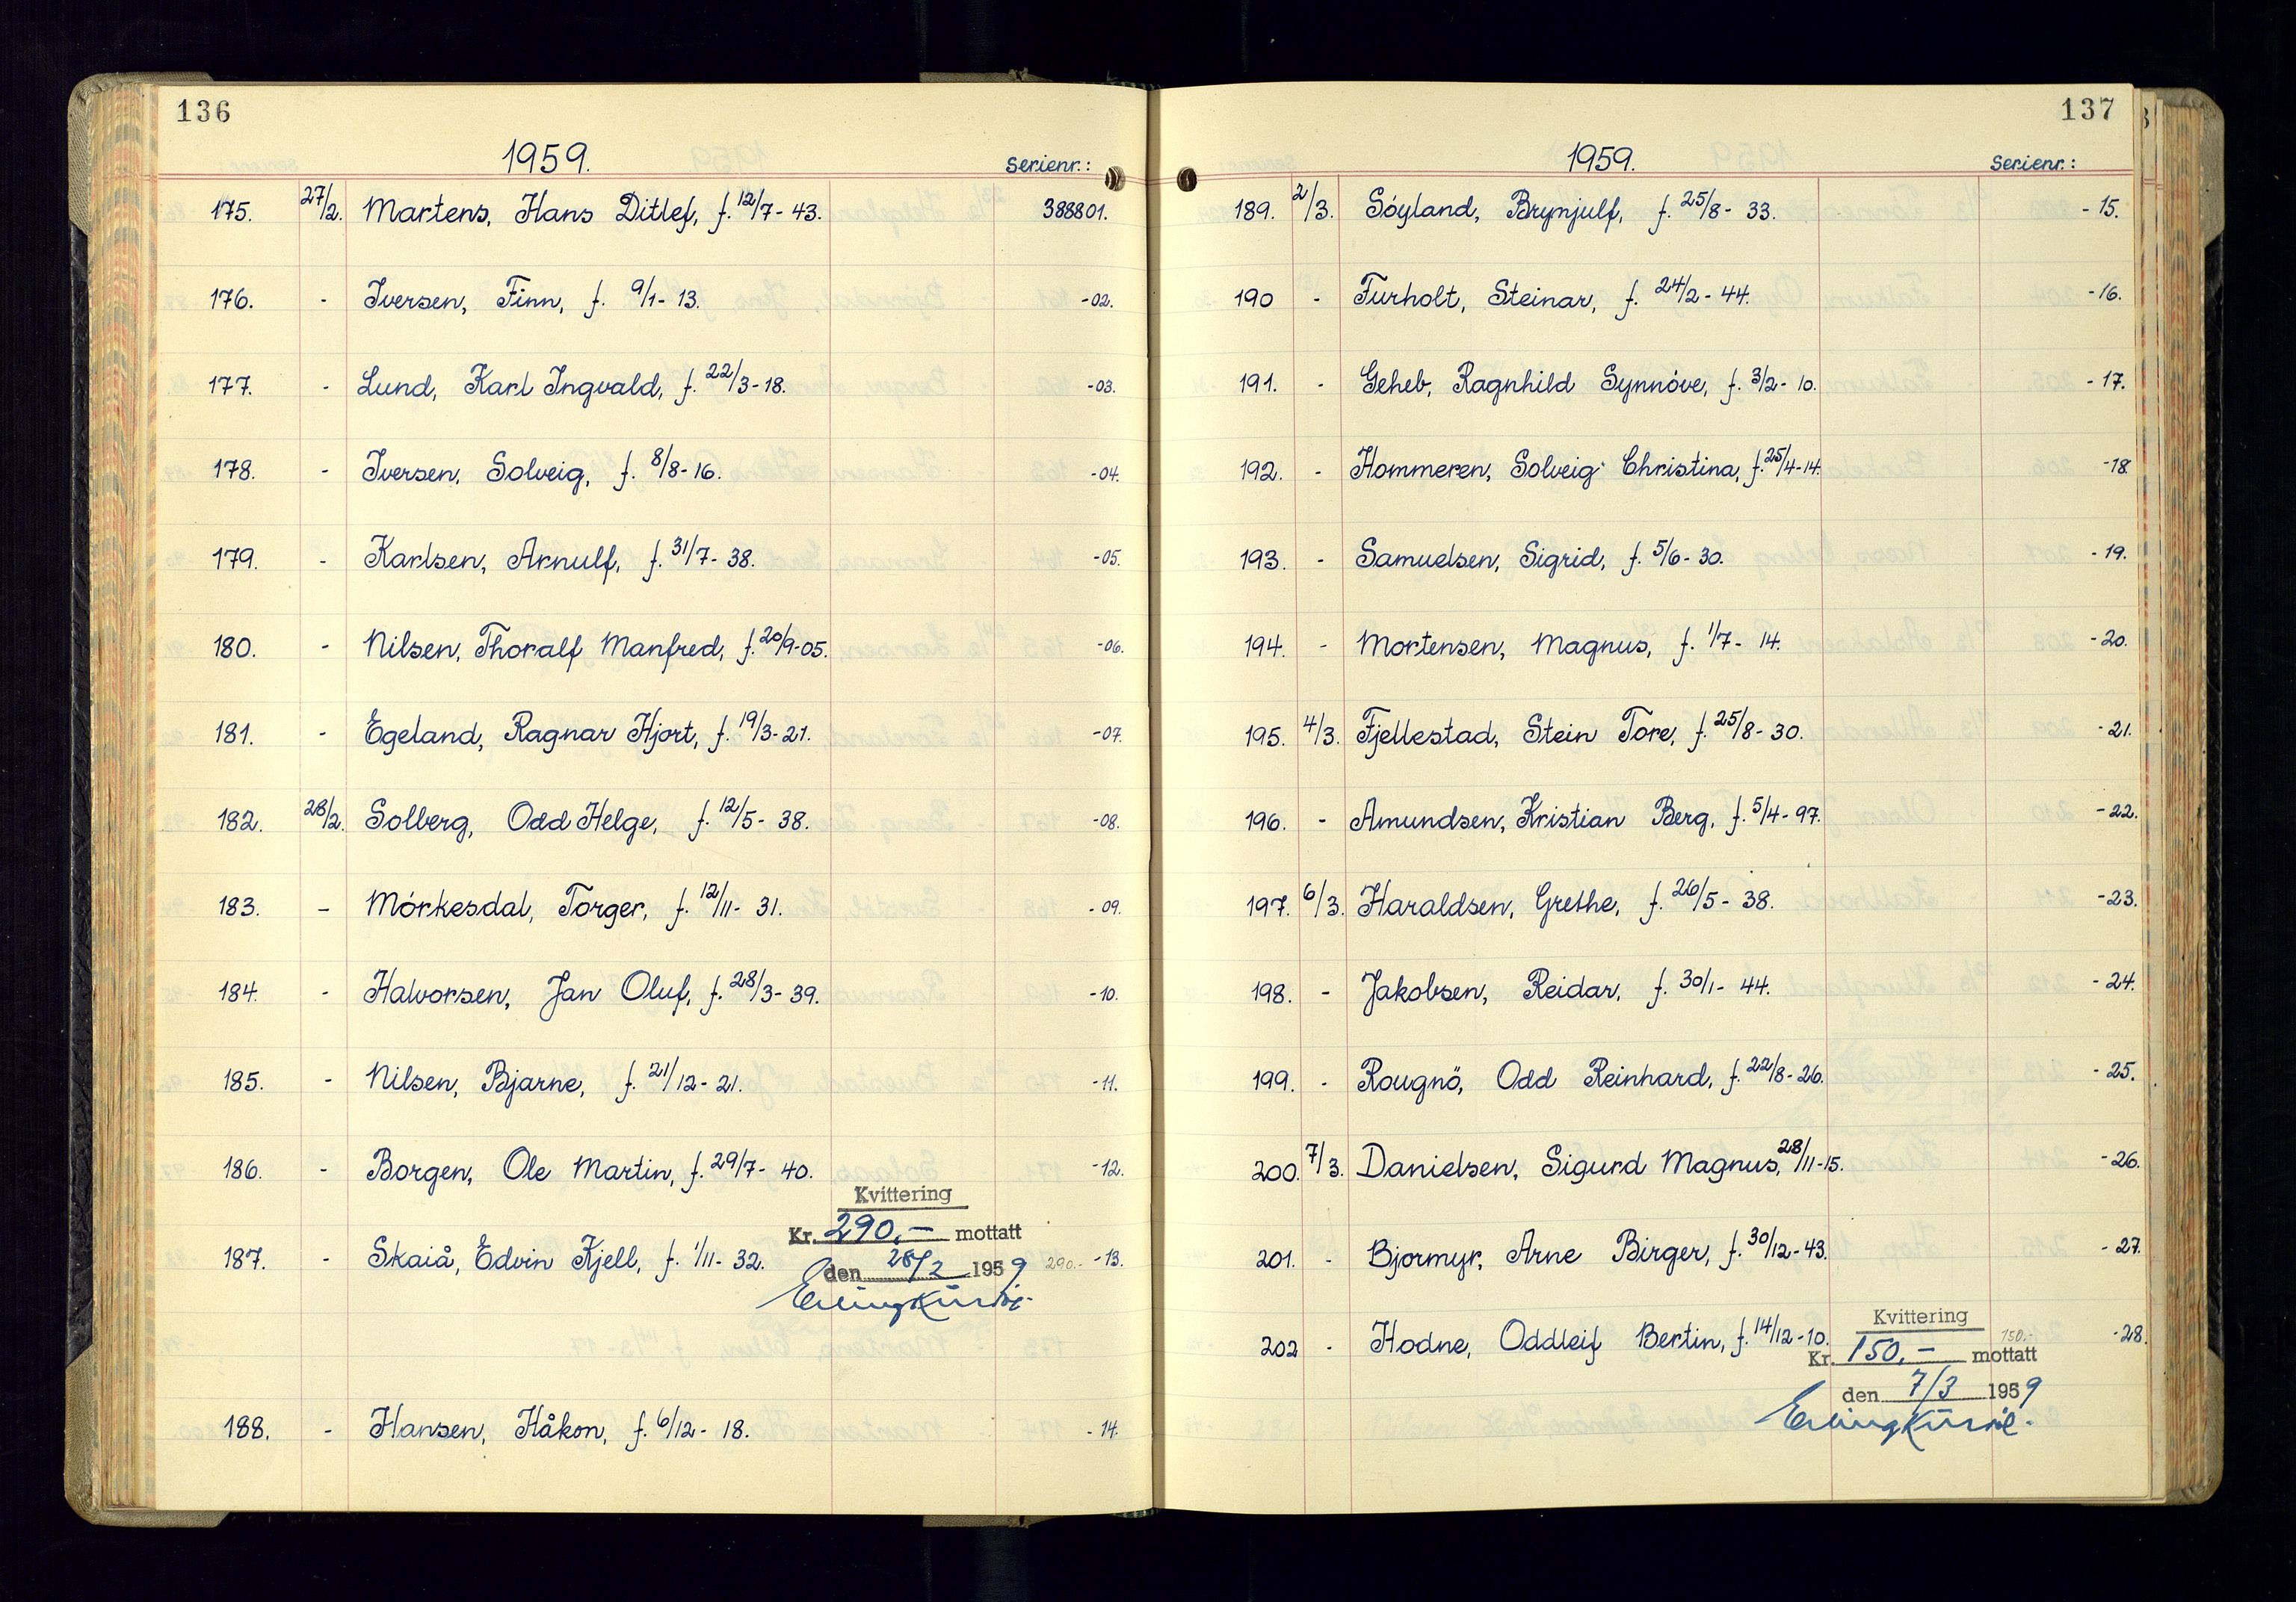 136
1959.
Serienr.:
175. 27/2. Martens, Hans Ditlef, f. 12/7-43. 388801.
176. - Iversen, Finn, f. 9/1-13. -02.
177. - Lund, Karl Ingvald, f. 22/3-18. -03.
178. - Iversen, Solveig, f. 8/8-16. -04.
179. - Karlsen, Arnulf, f. 31/7-38. -05.
180. - Nilsen, Thoralf Manfred, f. 20/9-05. -06.
181. - Egeland, Ragnar Hjort, f. 19/3-21. -07.
182. 28/2. Solberg, Odd Helge, f. 12/5-38. -08.
183. - Mórkesdal, Torger, f. 12/11-31. -09.
184. - Halvorsen, Jan Oluf, f. 28/3-39. -10.
185. - Nilsen, Bjarne, f. 21/12-21. -11.
186. - Borgen, Ole Martin, f. 29/7-40. -12.
Kvittering
Kr. 290,- mottatt
187. - Skaiå, Edvin Kjell, f. 1/11-32. 290.- -13.
den 28/2 1959
188. - Hansen, Håkon, f. 6/12-18. -14.
137
1959.
Serienr.:
189. 2/3. Sóyland, Brynjulf, f. 25/8-33. -15.
190 - Furholt, Steinar, f. 24/2-44. -16.
191. - Geheb, Ragnhild Synnóve, f. 3/2-10. -17.
192. - Hommeren, Solveig Christina, f. 25/4-14. -18
193. - Samuelsen, Sigrid, f. 5/6-30. -19.
194. - Mortensen, Magnus, f. 1/7-14. -20.
195. 4/3. Fjellestad, Stein Tore, f. 25/8-30. -21.
196. - Amundsen, Kristian Berg, f. 5/4-97. -22.
197. 6/3. Haraldsen, Grethe, f. 26/5-38. -23.
198. - Jakobsen, Reidar, f. 30/1-44. -24.
199. - Rougnö, Odd Reinhard, f. 22/8-26. -25.
200. 7/3. Danielsen, Sigurd Magnus, 28/11-15. -26.
201. - Bjormyr, Arne Birger, f. 30/12-43. -27.
202 - Hodne, Oddleif Bertin, f. 14/12-10. 150.- -28.
Kvittering
Kr. 150,- mottatt
den 7/3 1959